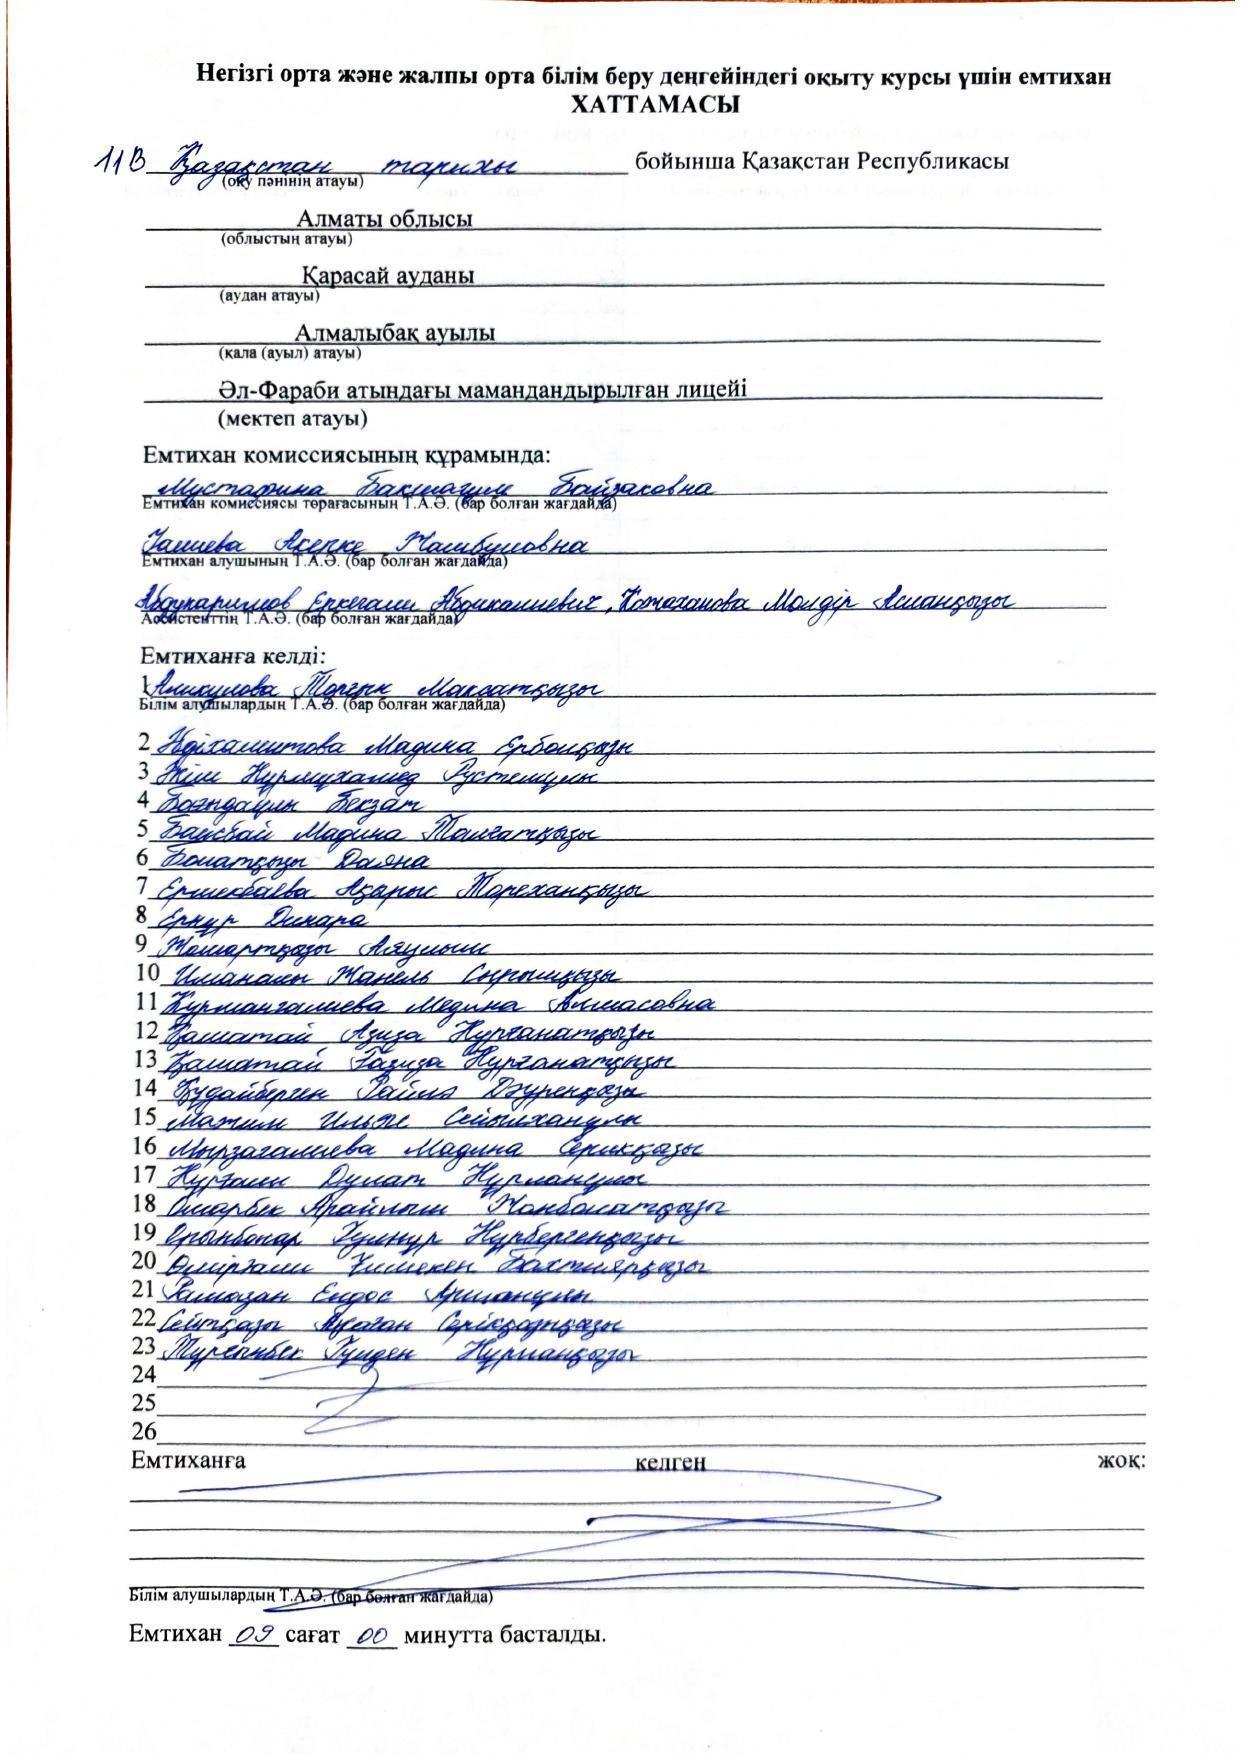 Негізгі орта және жалпы орта білім беру деңгейіндегі оқыту курсы үшін емтихан
ХАТТАМАСЫ
11В Қазақстан тарихы бойынша Қазақстан Республикасы
(оқу пәнінің атауы)
Алматы облысы
(облыстың атауы)
Қарасай ауданы
(аудан атауы)
Алмалыбақ ауылы
(қала (ауыл) атауы)
Әл-Фараби атындағы мамандандырылған лицейі
(мектеп атауы)
Емтихан комиссиясының құрамында:
Мустафина Бакшагуль Байзаковна
Емтихан комиссиясы төрағасының Т.А.Ә. (бар болған жағдайда)
Акепке
Емтихан алушының Т.А.Ә. (бар болған жағдайда)
Абдукаримов Еркегали Абдикалиевич, Молдір Асманқызы
Ассистенттің Т.А.Ә. (бар болған жағдайда)
Емтиханға келді:
1 Аликулова Торгын Максатқызы
Білім алушылардың Т.А.Ә. (бар болған жағдайда)
2 Әбіхамитова Мадина Ерболқызы
3 Нурмухамед Рустемұлы
4 Бекзат
5 Баисбай Мадина Талғатқызы
6 Болатқызы Даяна
7 Ермекбаева Ақырыс Тореханқызы
8 Ернұр Динара
9 Аяулым
10 Иманалы Жанель Сырымқызы
11 Курмангалиева Медина Алмасовна
12 Қаматай Азиза Нурғанатқызы
13 Қаматай Ғазиза Нурғанатқызы
14 Құдайберген Дәуренқызы
15 Мажит Ильяс Сейілханұлы
16 Мырзагалиева Мадина Серикқызы
17 Нұрғали Дулат Нұрланұлы
18 Омарбек Арайлым Жанболатқызы
19 Орынбасар Гулнұр Нұрбергенқызы
20 Өмірғали Бахтиярқызы
21 Рамазан Елдос
22 Сейтқазы
23 Тұрғынбек Гулден Нұрланқызы
24
25
26
Емтиханға келген жоқ:
Білім алушылардың Т.А.Ә. (бар болған жағдайда)
Емтихан 09 сағат 00 минутта басталды.